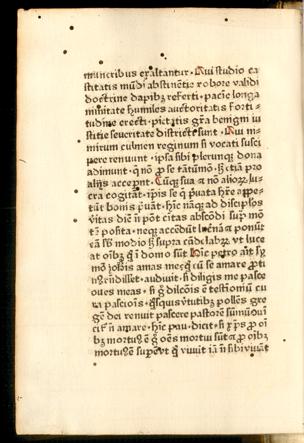 muneribus exaltantur. Qui studio ca
stitatis mūdi abstinētie robore validi
doctrine dapibꝫ referti. paciēe longa
nimitate humiles auctoritatis forti⸗
tudine erecti. pietatis gr̄a benigni iu
stitie seueritate districte sunt. Qui ni⸗
mirum culmen reginum si vocati susci
pere rennunt. ipsa sibi plerunqꝫ dona
adimunt. q̄ nō ꝓ se tātūmō. hꝫ etiā pro
alijs acceperūt. Cūqꝫ sua ⁊ nō alioꝝ lu⸗
cra cogitāt. ip̄is se q̄ p̄uata hr̄e appe⸗
tūt bonis p̄uāt. hic nāqꝫ ad discip̄los
vitas dicit nō pōt ciuitas abscōdi suꝑ mō
tē posita. neqꝫ accēdūt lucernā ⁊ ponūt
eā sb̄ modio hꝫ supra cādelabꝝ vt luce
at oībꝫ q̄ ī domo sūt. Hic petro ait sy
mō ioh̄is amas me. cū se amare ꝓti
nꝰ rn̄disset. audiuit. si diligis me pasce
oues meas. si g̊ dilcōis ē testīoniū cu
ra pasciois. q̄squis v̄tutibꝫ pollēs gre
gē dei renuit pascere pastorē sūmū oui
cit̄ nō amare. hic pau. dicit. si xp̄s ꝓ oī
bꝫ mortuꝰ ē g̊ oēs mortui sūt. ⁊ ꝓ oībꝫ
mortuꝰ ē supest vt q̄ viuūt iā nō sibi viuāt